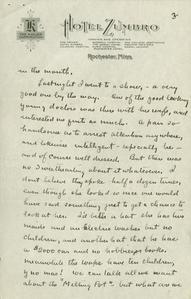 3
HOTEL ZUMBRO
Rochester, Minn.
in the month.
Last night I went to a show, - a very
good one by the way. One of the good looking
young doctors was there with his wife, and
interested me quite as much. A pair so
handsome as to attract attention anywhere,
and likewise intelligent - especially he -
and of course well dressed. But there was
no sweethearting about it whatsoever. I
don't believe they spoke half a dozen times
even though she looked as one would
have said something just to get a chance to
look at her. I'd bet a hat she has
maids and an electric washer but no
children, and another hat that he has
$5000 cars and no hobbies or books.
Meanwhile the wops have ten children,
y no mas! We can talk all we want
about the "Melting Pot" - but what we are